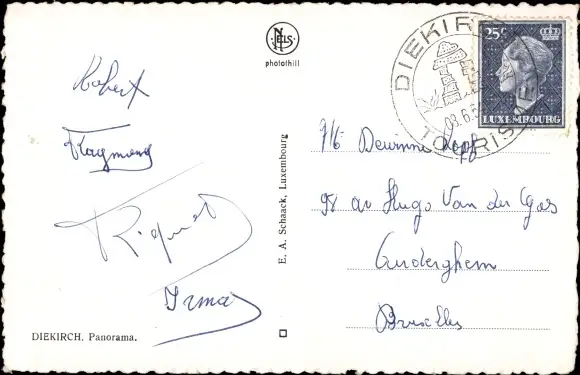 NELS
photothill
Robert
Raymond
Irma
DIEKIRCH. Panorama.
E. A. Schaack, Luxembourg
DIEKIRCH
TOURIST
25c
LUXEMBOURG
Dewinne
98 av Hugo Van der Goes
Auderghem
Bruxelles